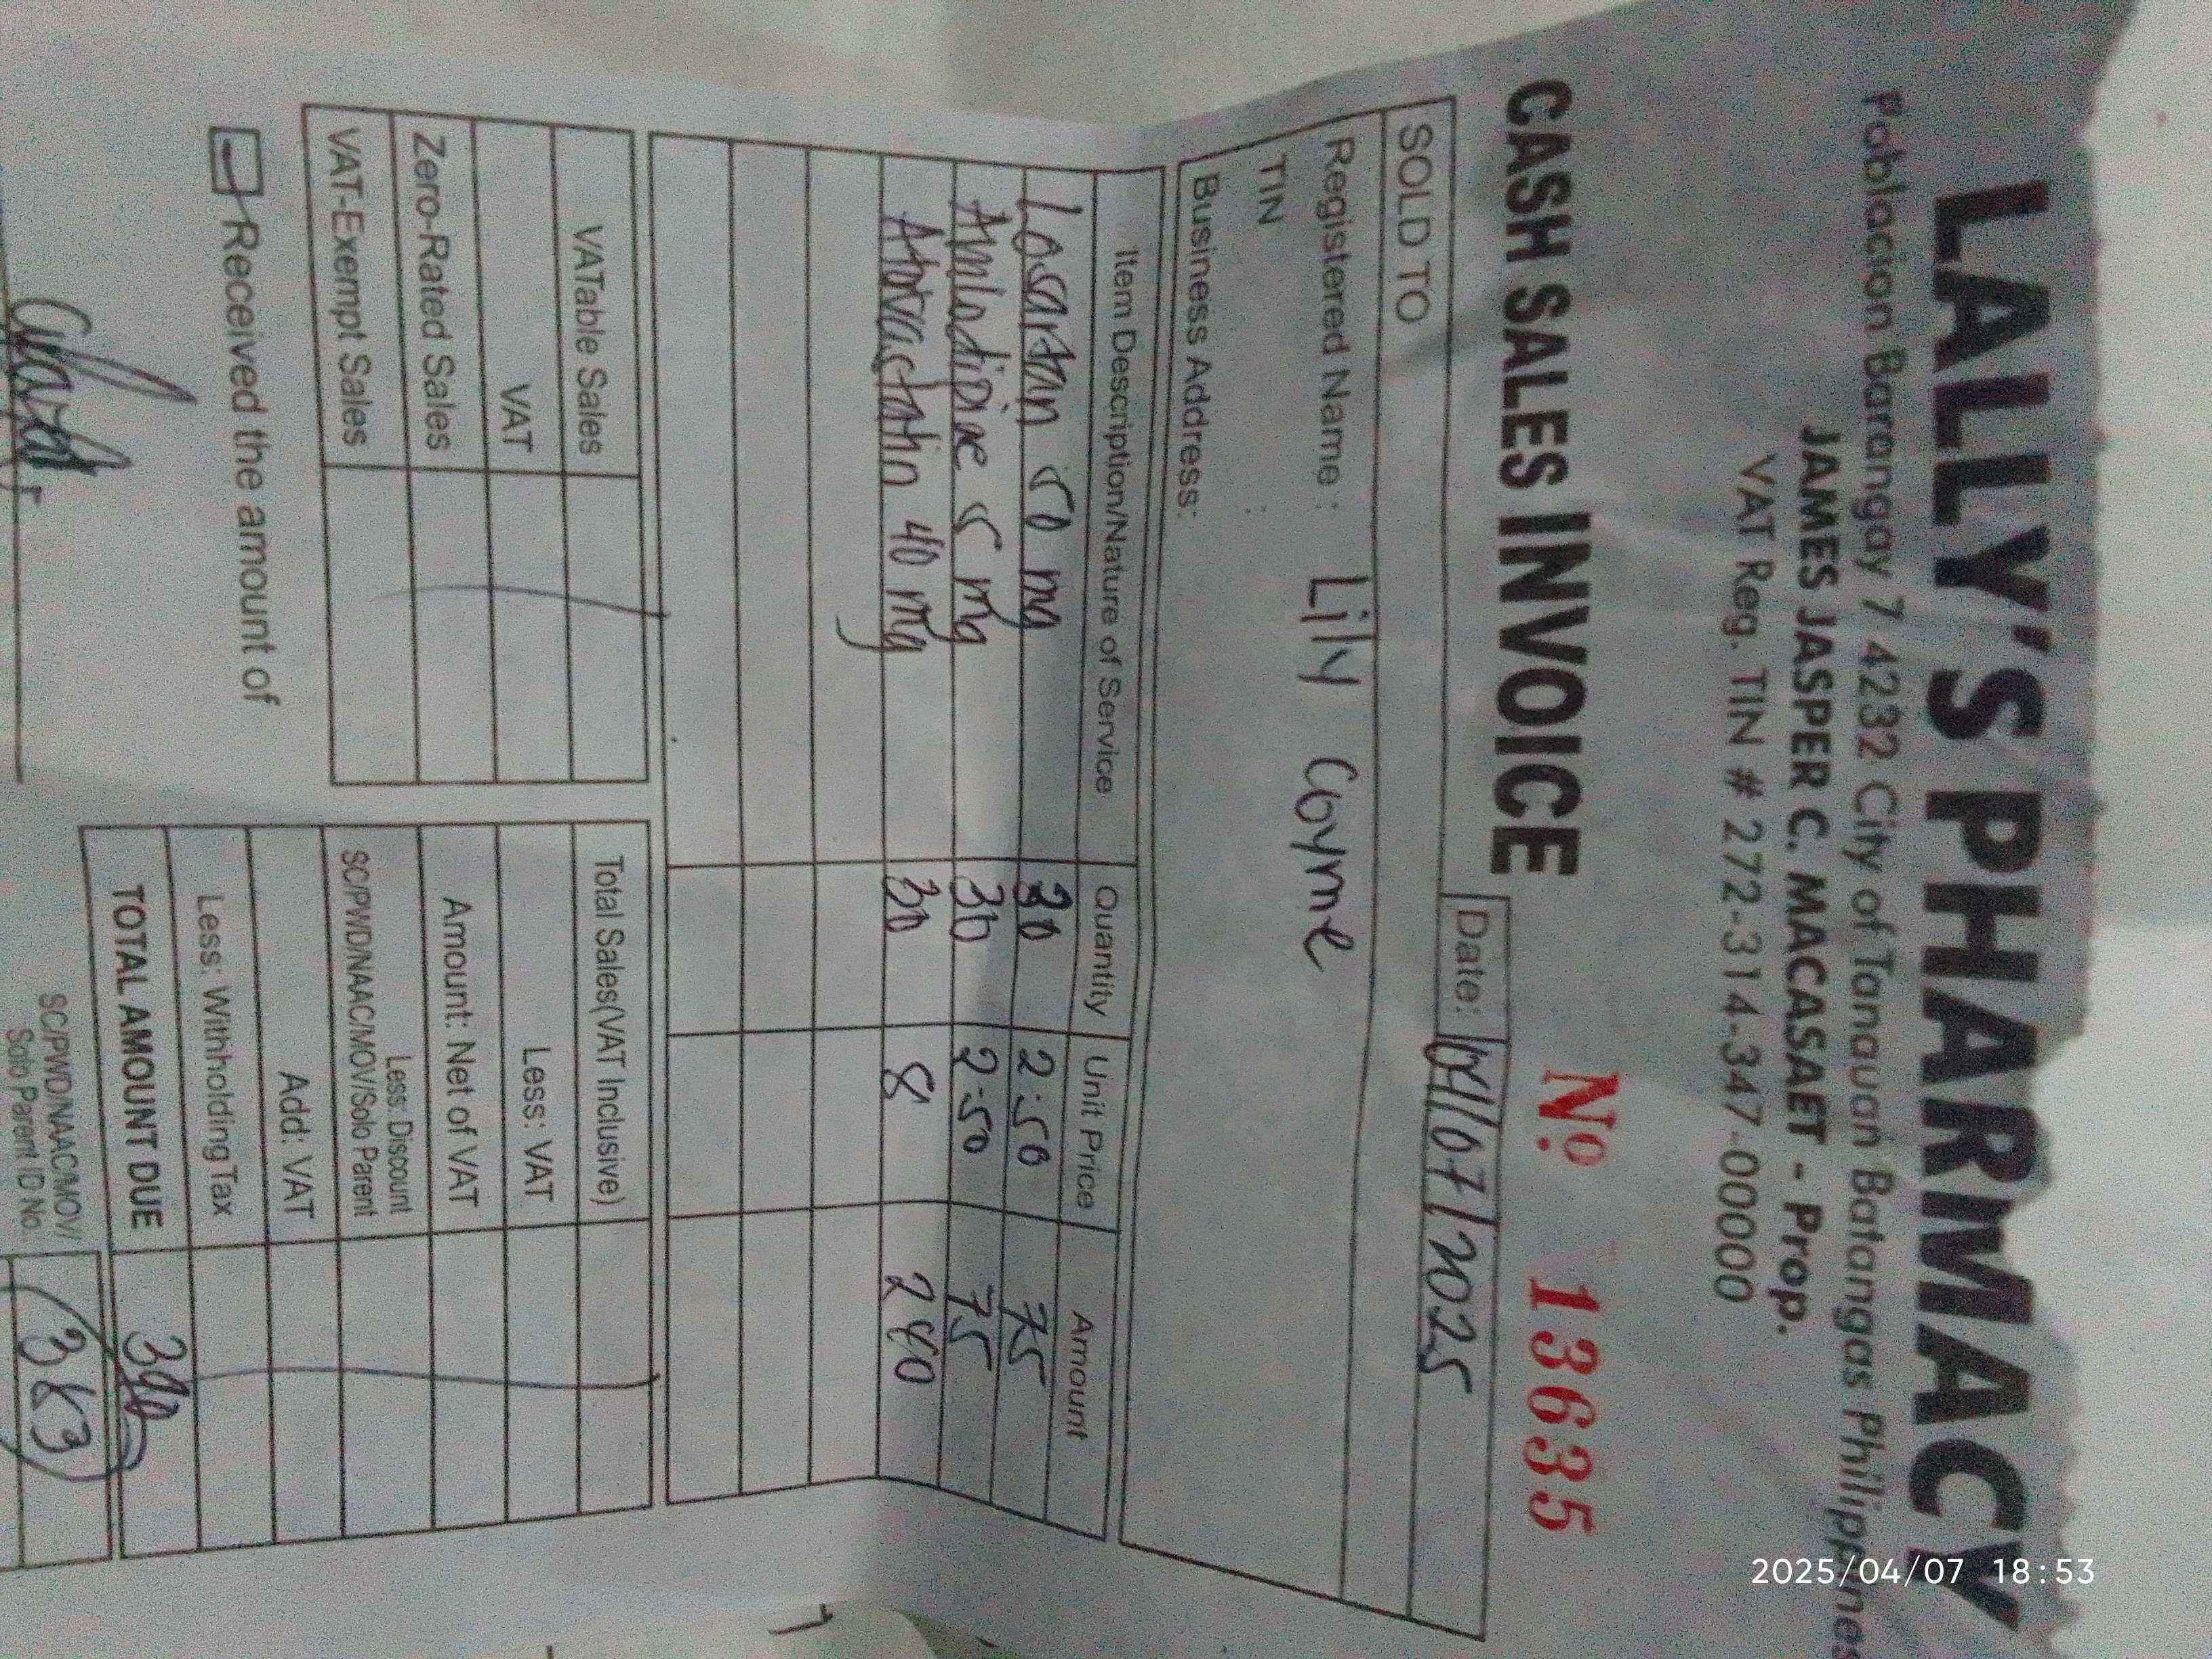 LALLY'S PHARMACY
Poblacion Barangay 7 4232 City of Tanauan Batangas Philippines
JAMES JASPER C. MACASAET - Prop.
VAT Reg. TIN # 272-314-347-00000
CASH SALES INVOICE
Nº 13635
Date: 04/07/2025
SOLD TO
Registered Name : Lily Coyme
TIN :
Business Address:
Item Description/Nature of Service Quantity Unit Price Amount
Losartan 50 mg 30 2.50 75
Amlodipine 5 mg 30 2.50 75
Atorvastatin 40 mg 30 8 240
VATable Sales
VAT
Zero-Rated Sales
VAT-Exempt Sales
Total Sales(VAT Inclusive)
Less: VAT
Amount: Net of VAT
Less: Discount
SC/PWD/NAAC/MOV/Solo Parent
Add: VAT
Less: Withholding Tax
TOTAL AMOUNT DUE 390
Received the amount of
SC/PWD/NAAC/MOV/
Solo Parent ID No.
383
2025/04/07 18:53